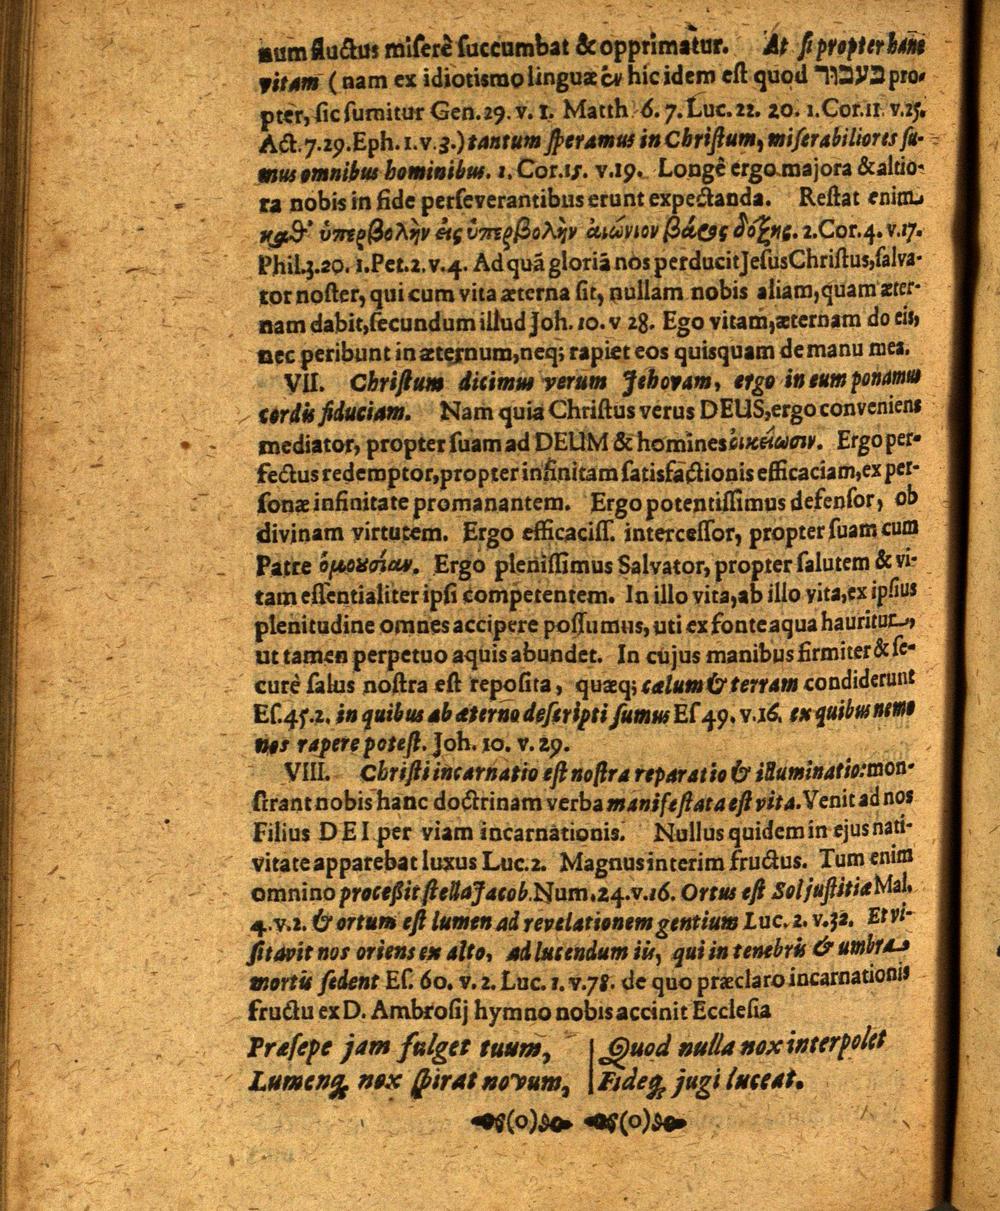 num fluctus miserè succumbat & opprimatur. At si propter hanc
vitam (nam ex idiotismo linguæ ἐν hic idem est quod בעבור pro-
pter, sic sumitur Gen. 29. v. 1. Matth. 6. 7. Luc. 22. 20. 1. Cor. 11. v. 25.
Act. 7. 29. Eph. 1. v. 3.) tantum speramus in Christum, miserabiliores su-
mus omnibus hominibus. 1. Cor. 15. v. 19. Longè ergo majora & altio-
ra nobis in fide perseverantibus erunt expectanda. Restat enim
καθ' ὑπερβολὴν εἰς ὑπερβολὴν αἰώνιον βάρος δόξης. 2. Cor. 4. v. 17.
Phil. 3. 20. 1. Pet. 2. v. 4. Ad quā gloriā nos perducit Jesus Christus, salva-
tor noster, qui cum vita æterna sit, nullam nobis aliam, quam æter-
nam dabit, secundum illud Joh. 10. v 28. Ego vitam, æternam do eis,
nec peribunt in æternum, neq; rapiet eos quisquam de manu mea.
VII. Christum dicimus verum Jehovam, ergo in eum ponamus
cordis fiduciam. Nam quia Christus verus DEUS, ergo conveniens
mediator, propter suam ad DEUM & homines οἰκείωσιν. Ergo per-
fectus redemptor, propter infinitam satisfactionis efficaciam, ex per-
sonæ infinitate promanantem. Ergo potentissimus defensor, ob
divinam virtutem. Ergo efficaciss. intercessor, propter suam cum
Patre ὁμουσίαν. Ergo plenissimus Salvator, propter salutem & vi-
tam essentialiter ipsi competentem. In illo vita, ab illo vita, ex ipsius
plenitudine omnes accipere possumus, uti ex fonte aqua hauritur,
ut tamen perpetuo aquis abundet. In cujus manibus firmiter & se-
curè salus nostra est reposita, quæq; cælum & terram condiderunt
Es. 45. 2. in quibus ab æterno descripti sumus Es 49. v. 16. ex quibus nemo
nos rapere potest. Joh. 10. v. 29.
VIII. Christi incarnatio est nostra reparatio & illuminatio: mon-
strant nobis hanc doctrinam verba manifestata est vita. Venit ad nos
Filius DEI per viam incarnationis. Nullus quidem in ejus nati-
vitate apparebat luxus Luc. 2. Magnus interim fructus. Tum enim
omnino processit stella Jacob. Num. 24. v. 16. Ortus est Sol justitiæ Mal.
4. v. 2. & ortum est lumen ad revelationem gentium Luc. 2. v. 32. Et vi-
sitavit nos oriens ex alto, ad lucendum iis, qui in tenebris & umbra
mortis sedent Es. 60. v. 2. Luc. 1. v. 78. de quo præclaro incarnationis
fructu ex D. Ambrosij hymno nobis accinit Ecclesia
Præsepe jam fulget tuum,
Lumenq; nox spirat novum,
Quod nulla nox interpolet
Fideq; jugi luceat.
(o) (o)